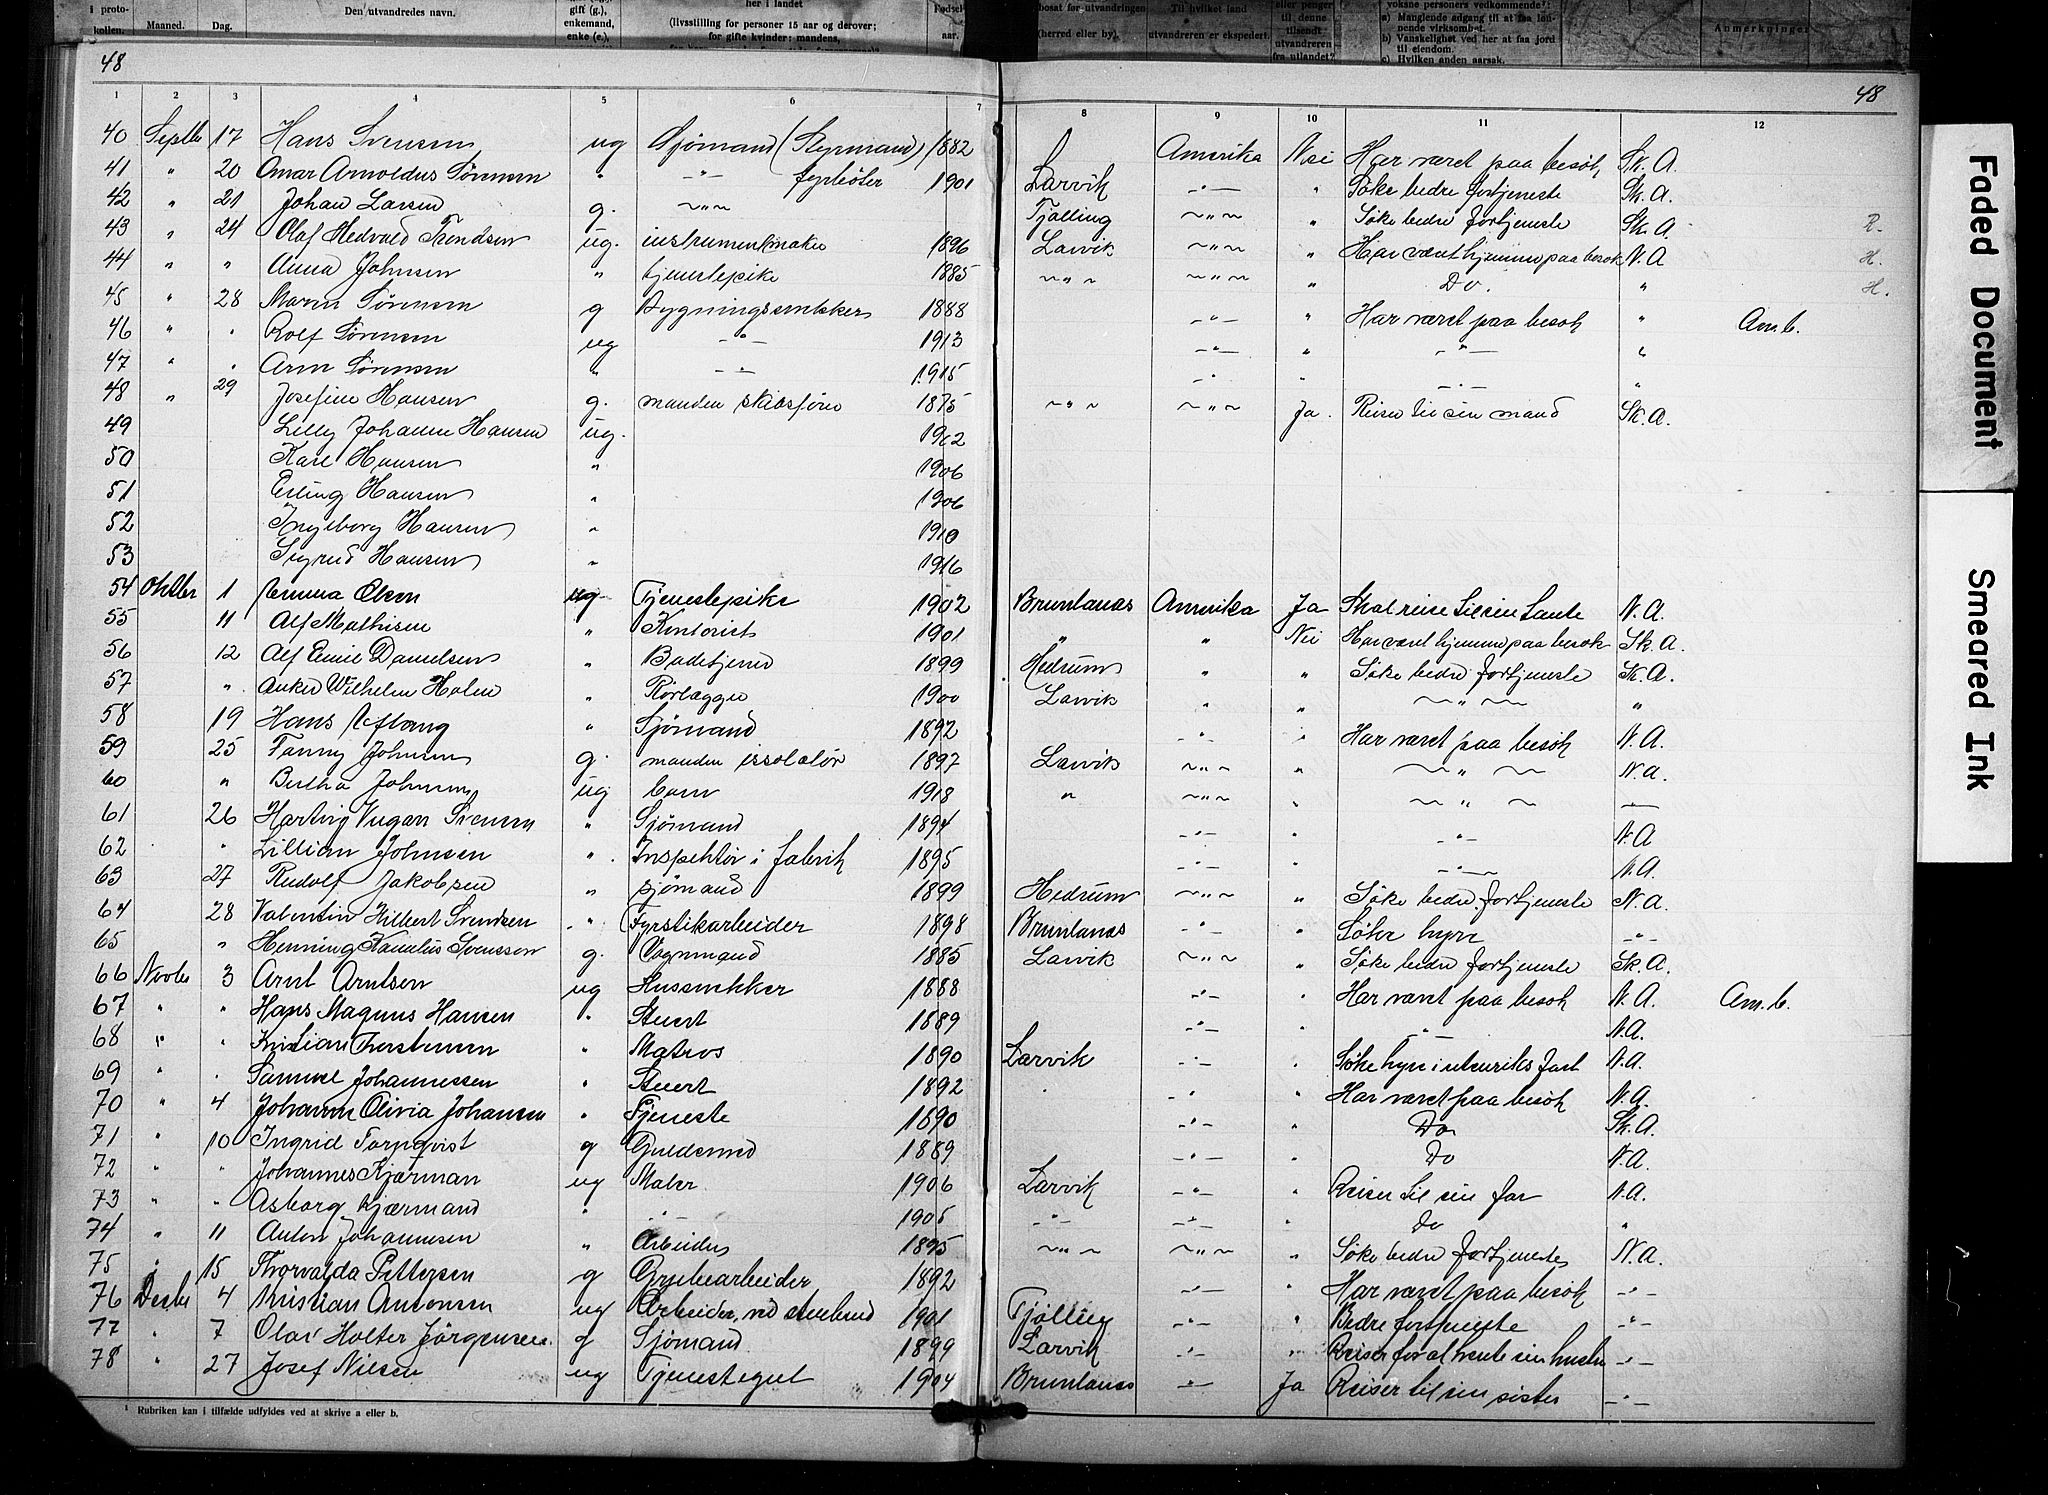 i proto- kollen. Maaned. Dag. Den utvandredes navn. gift (g.), enkemand, enke (e.), her i landet (livsstilling for personer 15 aar og derover; for gifte kvinder: mandens, Fødsels- aar. bosat før utvandringen (herred eller by). Til hvilket land utvandreren er ekspedert. eller penger til denne tilsendt utvandreren fra utlandet? voksne personers vedkommende¹: a) Manglende adgang til at faa løn- nende virksomhet. b) Vanskelighet ved her at faa jord til eiendom. c) Hvilken anden aarsak. Anmerkninger
48 48
1 2 3 4 5 6 7 8 9 10 11 12
40 Septbr 17 Hans Svensen ug Sjømand (Styrmand) 1882 Amerika Nei Har været paa besøk Sk. A.
41 " 20 Omar Arnoldus Sørensen " -"- fyrbøter 1901 Larvik -"- " Søke bedre fortjeneste Sk. A.
42 " 21 Johan Larsen g. ~"~ Tjølling ~"~ " Søke bedre fortjeneste Sk. A. R.
43 " 24 Olaf Hedvald Trendsen ug. instrumentmaker 1896 Larvik ~"~ " Har været hjemme paa besøk N. A H.
44 " " Anna Johnsen " tjenestepike 1885 ~"~ ~"~ " Do. " H.
45 " 28 Maren Sørensen g Bygningssnekker 1888 -"- " Har været paa besøk " Am. b.
46 " " Rolf Sørensen ug -"- 1913 -"- " -"- "
47 " " Arne Sørensen " -"- 1915 -"- " -"- "
48 " 29 Josefine Hansen g. manden skibsfører 1875 ~"~ ~"~ Ja. Reiser til sin mand Sk. A.
49 Lilly Johanne Hansen ug. 1902
50 Kare Hansen " 1906
51 Erling Hansen " 1906
52 Ingeborg Hansen " 1910
53 Sigrid Hansen " 1916
54 Oktbr 1 Emma Olsen ug Tjenestepike 1902 Brunlanes Amerika Ja Skal reise til sin tante N. A.
55 11 Alf Mathisen " Kontorist 1901 " " Nei Har været hjemme paa besøk Sk. A.
56 12 Alf Emil Danielsen " Badetjener 1899 Hedrum " " Søke bedre fortjeneste Sk. A.
57 " Anker Wilhelm Holm " Rørlægger 1900 Larvik " " ~"~ "
58 19 Hans Aftang " Sjømand 1892 -"- " Har været paa besøk N. A.
59 25 Fanny Johnsen g. manden issolatør 1897 Larvik ~"~ " ~"~ N. A.
60 " Birtha Johnsen ug barn 1918 " ~"~ " ~"~ -"-
61 26 Hartvig Vugar Svensen " Sjømand 1894 -"- " -"- N. A
62 " Lillian Johnsen " Inspektør i fabrik 1895 -"- " -"- N. A.
63 27 Rudolf Jakobsen " sjømand 1899 Hedrum ~"~ " Søke bedre fortjeneste N. A.
64 28 Valentin Hilbert Svendsen " Fyrstikarbeider 1898 Brunlanes -"- " Søke hyre -"-
65 " Henning Kamilus Svensson g. Vognmand 1885 Larvik ~"~ " Søke bedre fortjeneste Sk. A.
66 Novbr 3 Arnt Arntsen ug Hussnekker 1888 -"- " Har været paa besøk N. A. Am. b.
67 " " Hans Magnus Hansen " Stuert 1889 -"- " -"- N. A.
68 " " Kristian Torstensen " Matros 1890 Larvik -"- " Søke hyre i utenriks fart N. A.
69 " " Samuel Johannessen " Stuert 1892 " -"- " Har været paa besøk N. A.
70 " 4 Johanne Olivia Johansen " Tjeneste 1890 -"- " Do Sk. A.
71 " 10 Ingrid Tornqvist g Guldsmed 1889 -"- " Do N. A.
72 " " Johannes Kjærman ug Maler 1906 Larvik -"- " Reiser til sin far N. A.
73 " " Asborg Kjærmand " -"- 1905 -"- -"- " Do "
74 " 11 Anton Johannesen " Arbeider 1895 ~"~ ~"~ " Søke bedre fortjeneste N. A.
75 " 15 Thorvalda Pettersen g Grubearbeider 1892 -"- " Har været paa besøk -"-
76 Desbr 4 Kristian Antonsen ug Arbeider, ved stenbrud 1901 Tjølling -"- " Bedre fortjeneste -"-
77 " 7 Olav Holter Jørgensen g Sjømand 1899 Larvik -"- " Reiser for at hente sin hustru -"-
78 " 27 Josef Nilsen ug Tjenestegut 1904 Brunlanes -"- Ja Reiser til sin søster -"-
¹ Rubriken kan i tilfælde utfyldes ved at skrive a eller b.
Faded Document
Smeared Ink